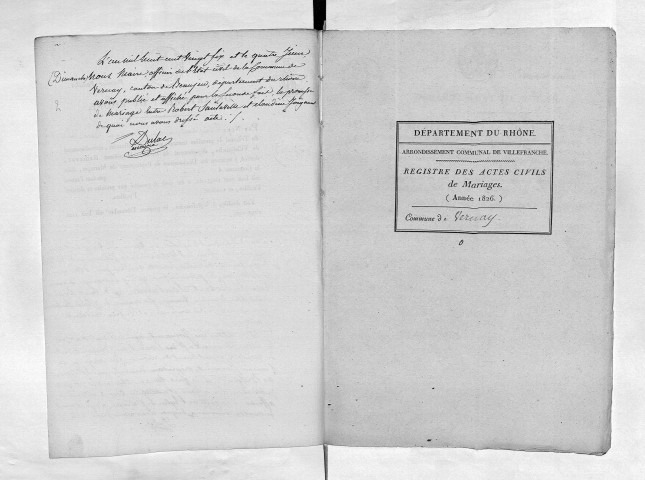 L'an mil huit cent vingt six et le quatre Juin
(Dimanche) Nous Maire, officier de l'Etat civil de la Commune de
Vernay, canton de Beaujeu, département du Rhône
avons publié et affiché pour la seconde fois, la promesse
de mariage entre Robert et claudine
de quoi nous avons dressé acte. /
Dulac
maire
DÉPARTEMENT DU RHÔNE.
ARRONDISSEMENT COMMUNAL DE VILLEFRANCHE.
REGISTRE DES ACTES CIVILS
de Mariages.
( Année 1826. )
Commune de Vernay.